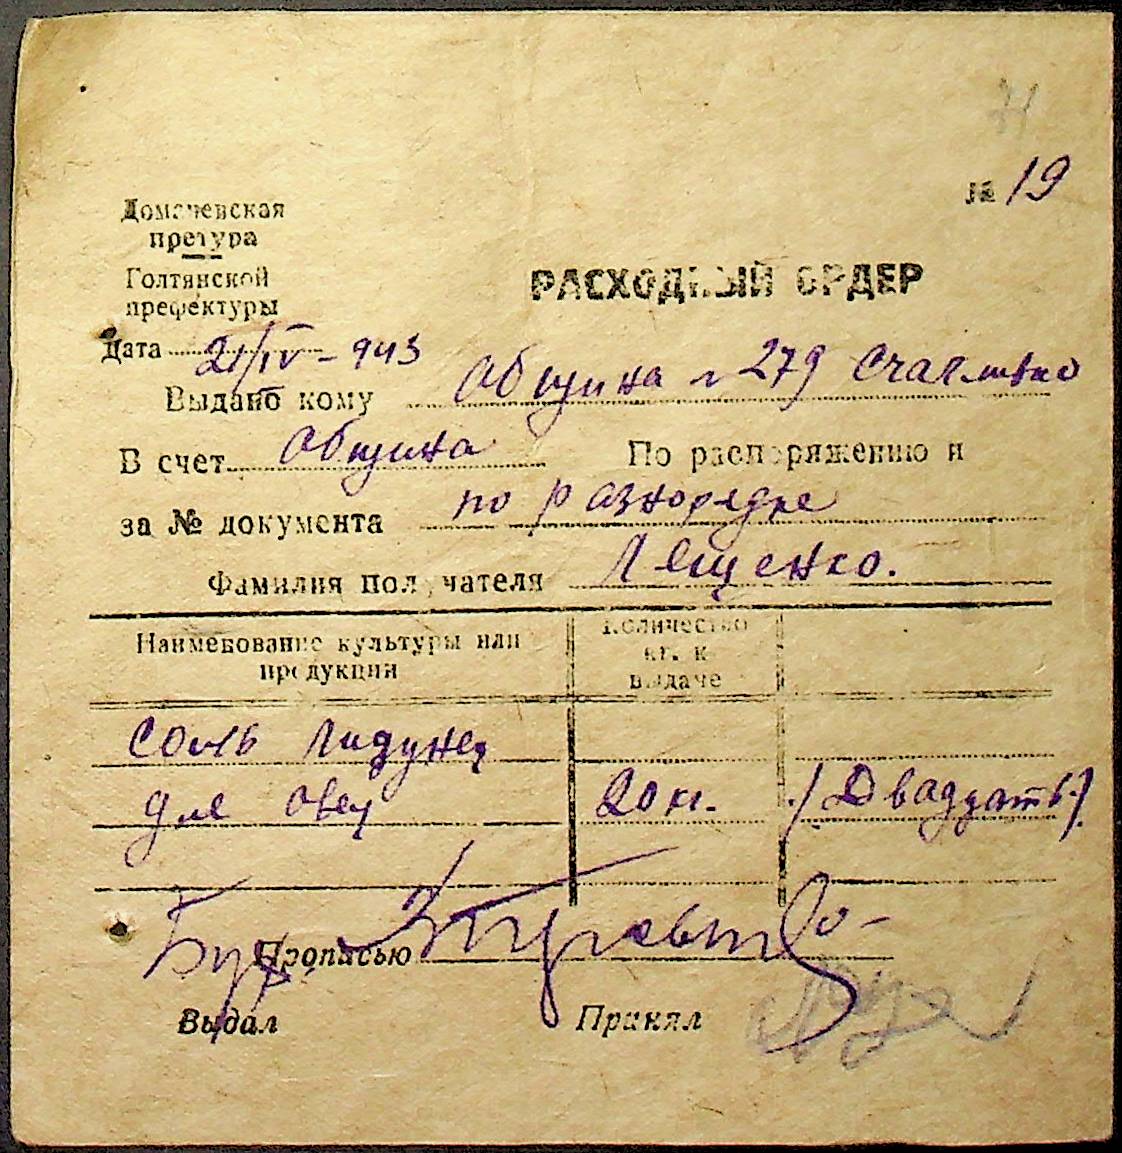 71
№ 19
Домачевская
претура
Голтянской
префектуры
РАСХОДНЫЙ ОРДЕР
Дата 21/IV - 943
Выдано кому Община № 279 Счастливко
В счет Община По распоряжению и
за № документа по разнорядке
Фамилия получателя Лещенко.
Наименование культуры или продукции
Количество кг. к выдаче
соль лидунец
для овец 20 кг. /Двадцать/.
Бух.
Прописью
Выдал Принял